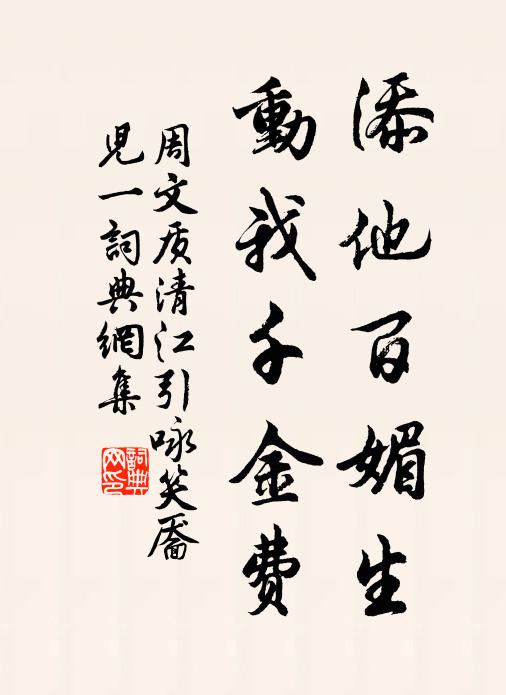 添他百媚生
動我千金費
周文质清江引咏笑靥
児一詞典網集
詞典
网印